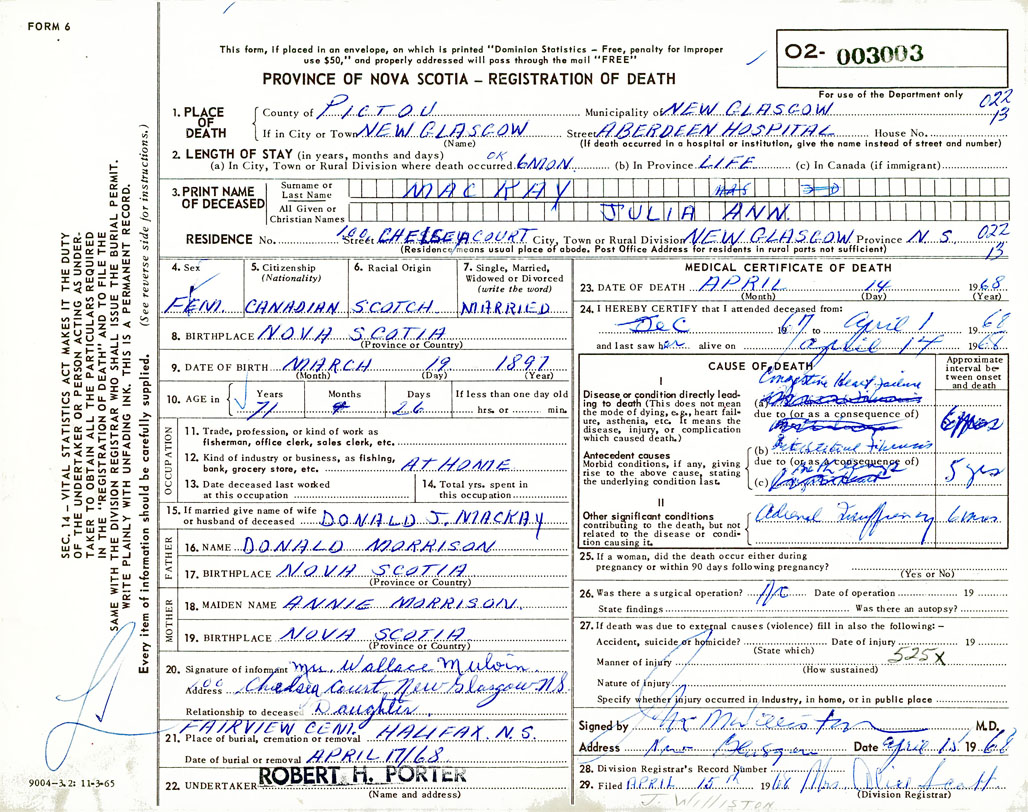 FORM 6
This form, if placed in an envelope, on which is printed "Dominion Statistics – Free, penalty for improper
use $50," and properly addressed will pass through the mail "FREE"
PROVINCE OF NOVA SCOTIA – REGISTRATION OF DEATH
O2- 003003
For use of the Department only
022
13
1. PLACE OF DEATH County of PICTOU Municipality of NEW GLASGOW
If in City or Town NEW GLASGOW Street ABERDEEN HOSPITAL House No.
(Name) (If death occurred in a hospital or institution, give the name instead of street and number)
2. LENGTH OF STAY (in years, months and days) OK
(a) In City, Town or Rural Division where death occurred 6 MON. (b) In Province LIFE (c) In Canada (if immigrant)
3. PRINT NAME OF DECEASED
Surname or Last Name MACKAY
All Given or Christian Names JULIA ANN.
RESIDENCE No. 100 Street CHELSEA COURT City, Town or Rural Division NEW GLASGOW Province N.S. 022
13
(Residence means usual place of abode. Post Office Address for residents in rural parts not sufficient)
4. Sex FEM.
5. Citizenship (Nationality) CANADIAN
6. Racial Origin SCOTCH
7. Single, Married, Widowed or Divorced (write the word) MARRIED
8. BIRTHPLACE NOVA SCOTIA
(Province or Country)
9. DATE OF BIRTH MARCH 19 1897
(Month) (Day) (Year)
10. AGE in Years Months Days If less than one day old
71 26 hrs. or min.
OCCUPATION
11. Trade, profession, or kind of work as
fisherman, office clerk, sales clerk, etc.
12. Kind of industry or business, as fishing,
bank, grocery store, etc. AT HOME
13. Date deceased last worked
at this occupation
14. Total yrs. spent in
this occupation
15. If married give name of wife
or husband of deceased DONALD J. MACKAY
FATHER
16. NAME DONALD MORRISON
17. BIRTHPLACE NOVA SCOTIA
(Province or Country)
MOTHER
18. MAIDEN NAME ANNIE MORRISON
19. BIRTHPLACE NOVA SCOTIA
(Province or Country)
20. Signature of informant Mrs. Wallace
Address 100 Chelsea Court, New Glasgow N.S
Relationship to deceased Daughter
FAIRVIEW CEM. HALIFAX N.S.
21. Place of burial, cremation or removal
Date of burial or removal APRIL 17/68
22. UNDERTAKER ROBERT H. PORTER
(Name and address)
MEDICAL CERTIFICATE OF DEATH
23. DATE OF DEATH APRIL 14 1968
(Month) (Day) (Year)
24. I HEREBY CERTIFY that I attended deceased from:
Dec 1967 to April 1 1968
and last saw her alive on April 14 1968
CAUSE OF DEATH
Approximate interval between onset and death
I
Disease or condition directly leading to death (This does not mean the mode of dying, e.g., heart failure, asthenia, etc. It means the disease, injury, or complication which caused death.)
Congestive Heart Failure
(a)
due to (or as a consequence of)
Antecedent causes
Morbid conditions, if any, giving rise to the above cause, stating the underlying condition last.
(b)
due to (or as a consequence of)
(c)
5 yrs
II
Other significant conditions
contributing to the death, but not related to the disease or condition causing it.
Adrenal Insufficiency
25. If a woman, did the death occur either during
pregnancy or within 90 days following pregnancy?
(Yes or No)
26. Was there a surgical operation? Date of operation 19
State findings Was there an autopsy?
27. If death was due to external causes (violence) fill in also the following: –
Accident, suicide or homicide? Date of injury 19
(State which)
525X
Manner of injury
(How sustained)
Nature of Injury
Specify whether injury occurred in Industry, in home, or in public place
Signed by M.D.
Address New Glasgow Date April 15 1968
28. Division Registrar's Record Number
29. Filed APRIL 15th 1968 Mrs Scott
(Division Registrar)
J. WILLISTON
SEC. 14 – VITAL STATISTICS ACT MAKES IT THE DUTY
OF THE UNDERTAKER OR PERSON ACTING AS UNDER-
TAKER TO OBTAIN ALL THE PARTICULARS REQUIRED
IN THE "REGISTRATION OF DEATH" AND TO FILE THE
SAME WITH THE DIVISION REGISTRAR WHO SHALL ISSUE THE BURIAL PERMIT.
WRITE PLAINLY WITH UNFADING INK. THIS IS A PERMANENT RECORD.
Every item of information should be carefully supplied. (See reverse side for instructions.)
9004–3.2: 11-3-65